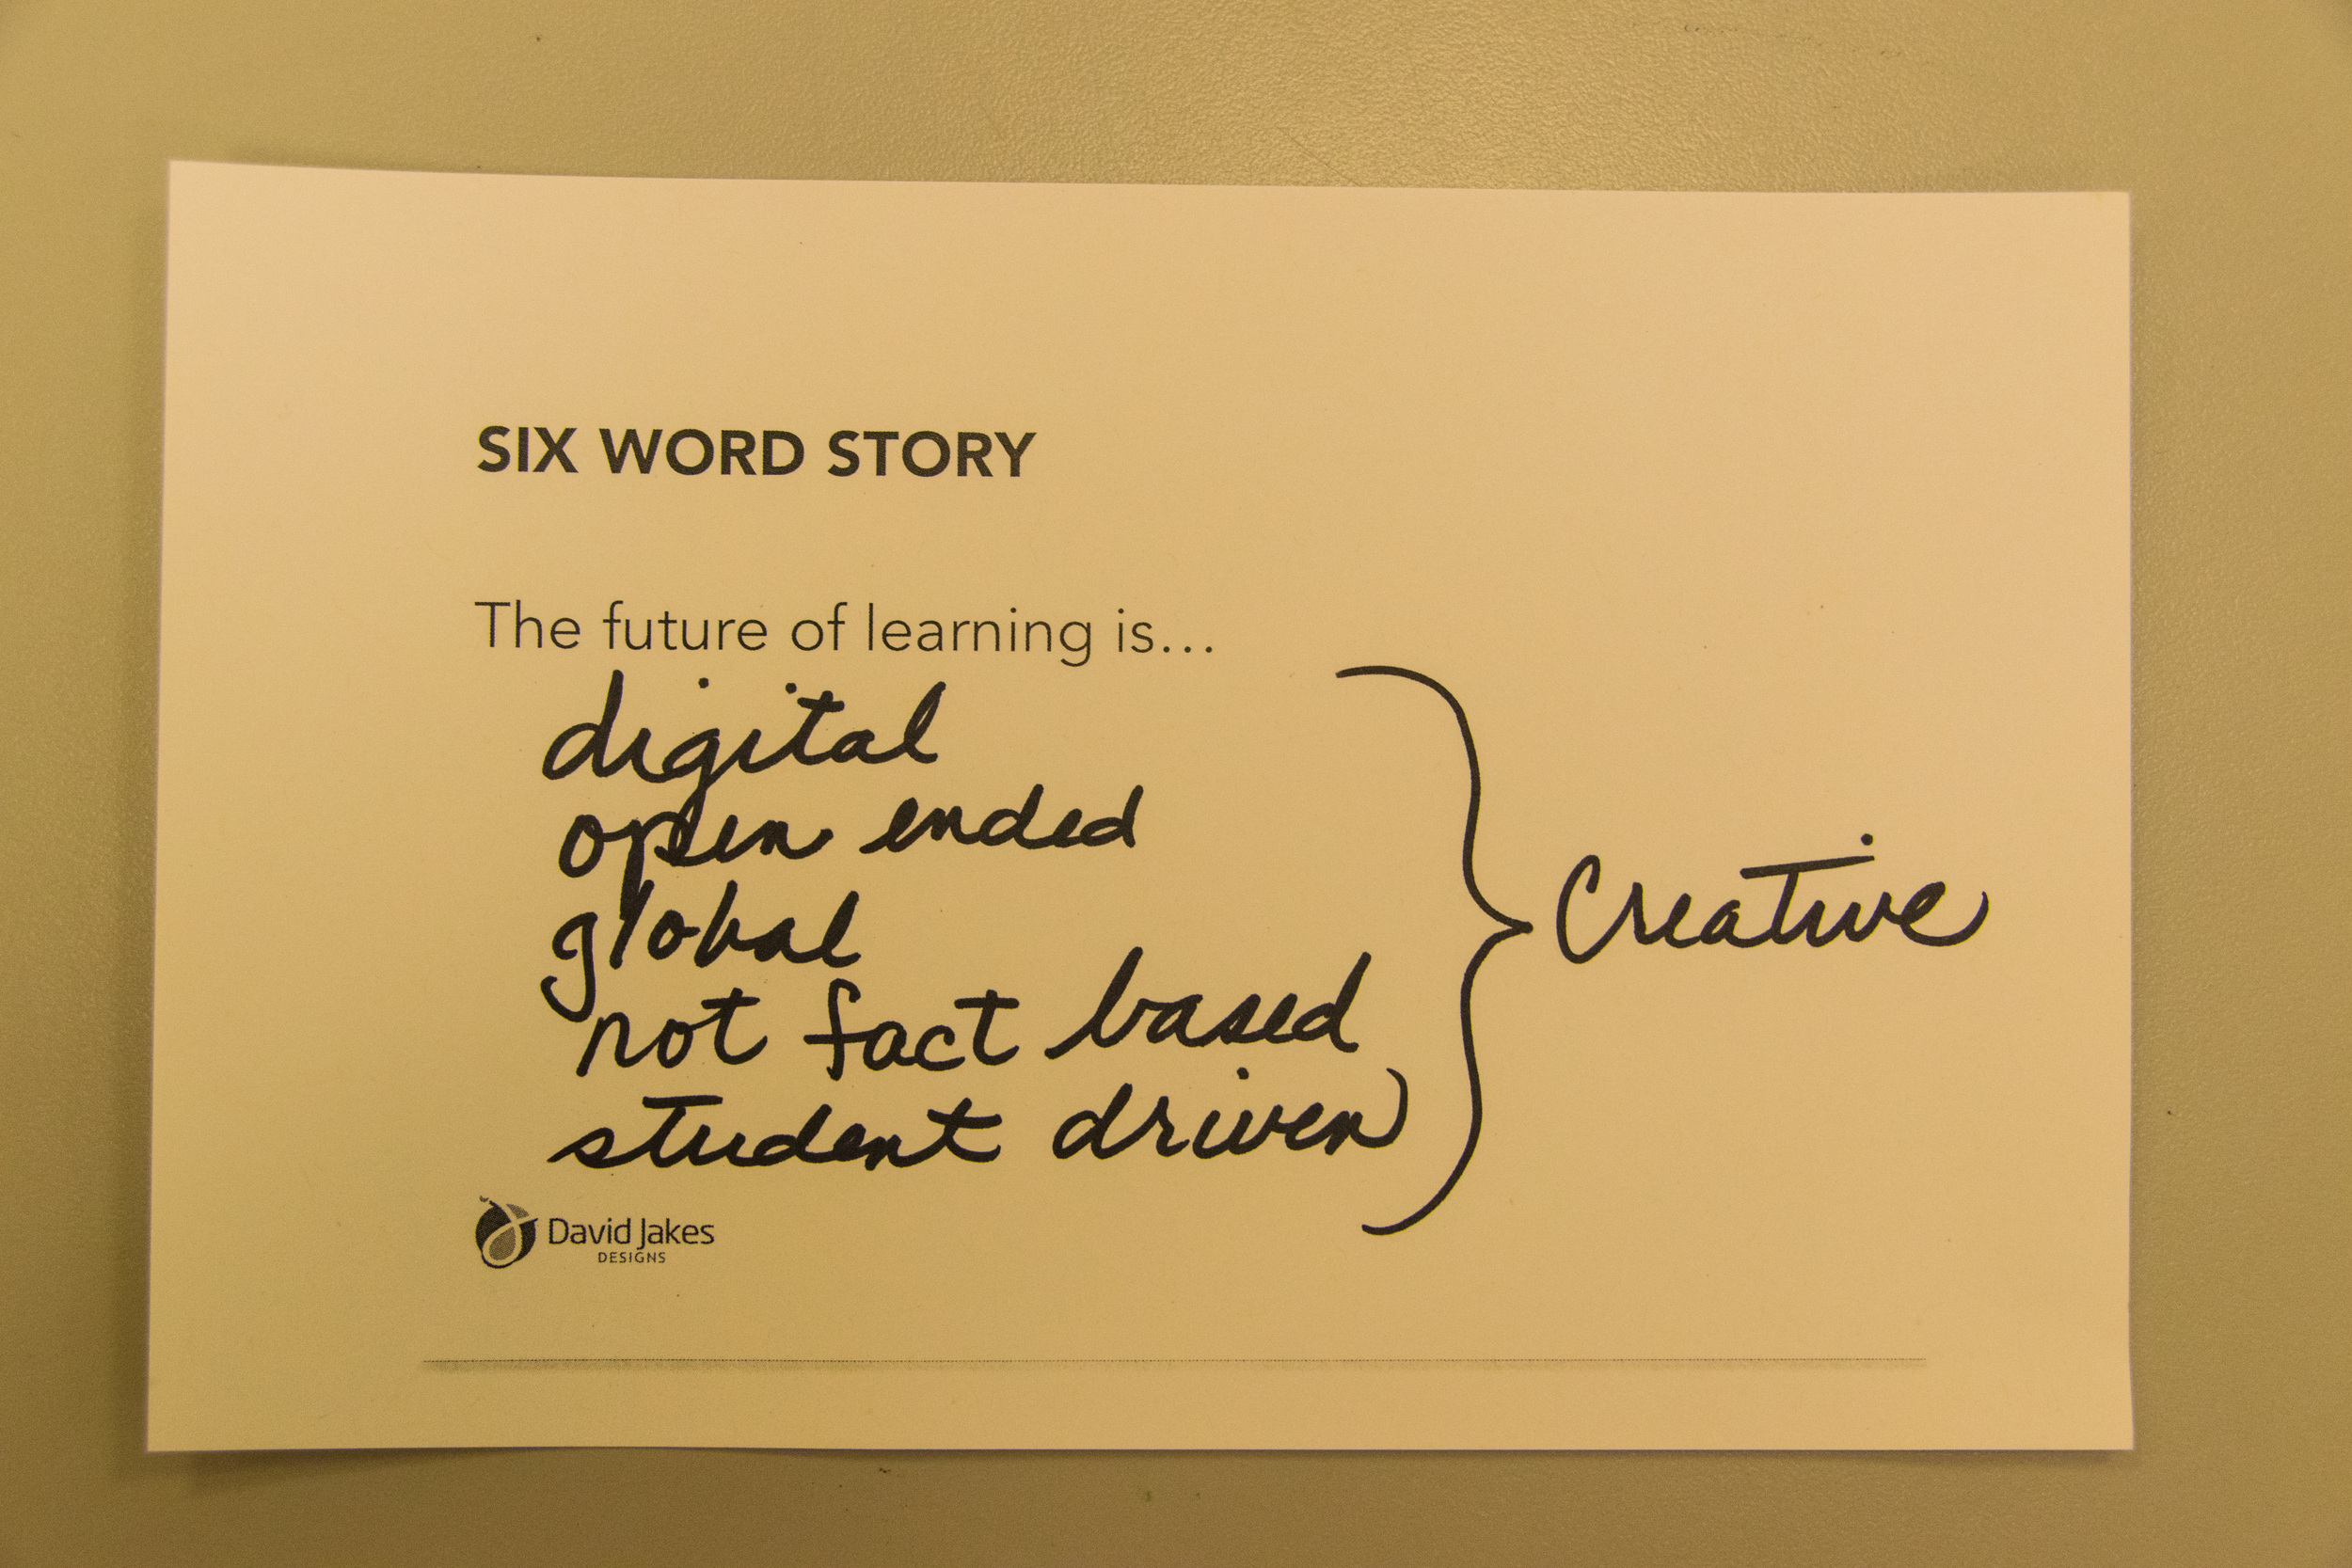 SIX WORD STORY
The future of learning is...
digital
open ended
global
not fact based
student driven
Creative
David Jakes
DESIGNS